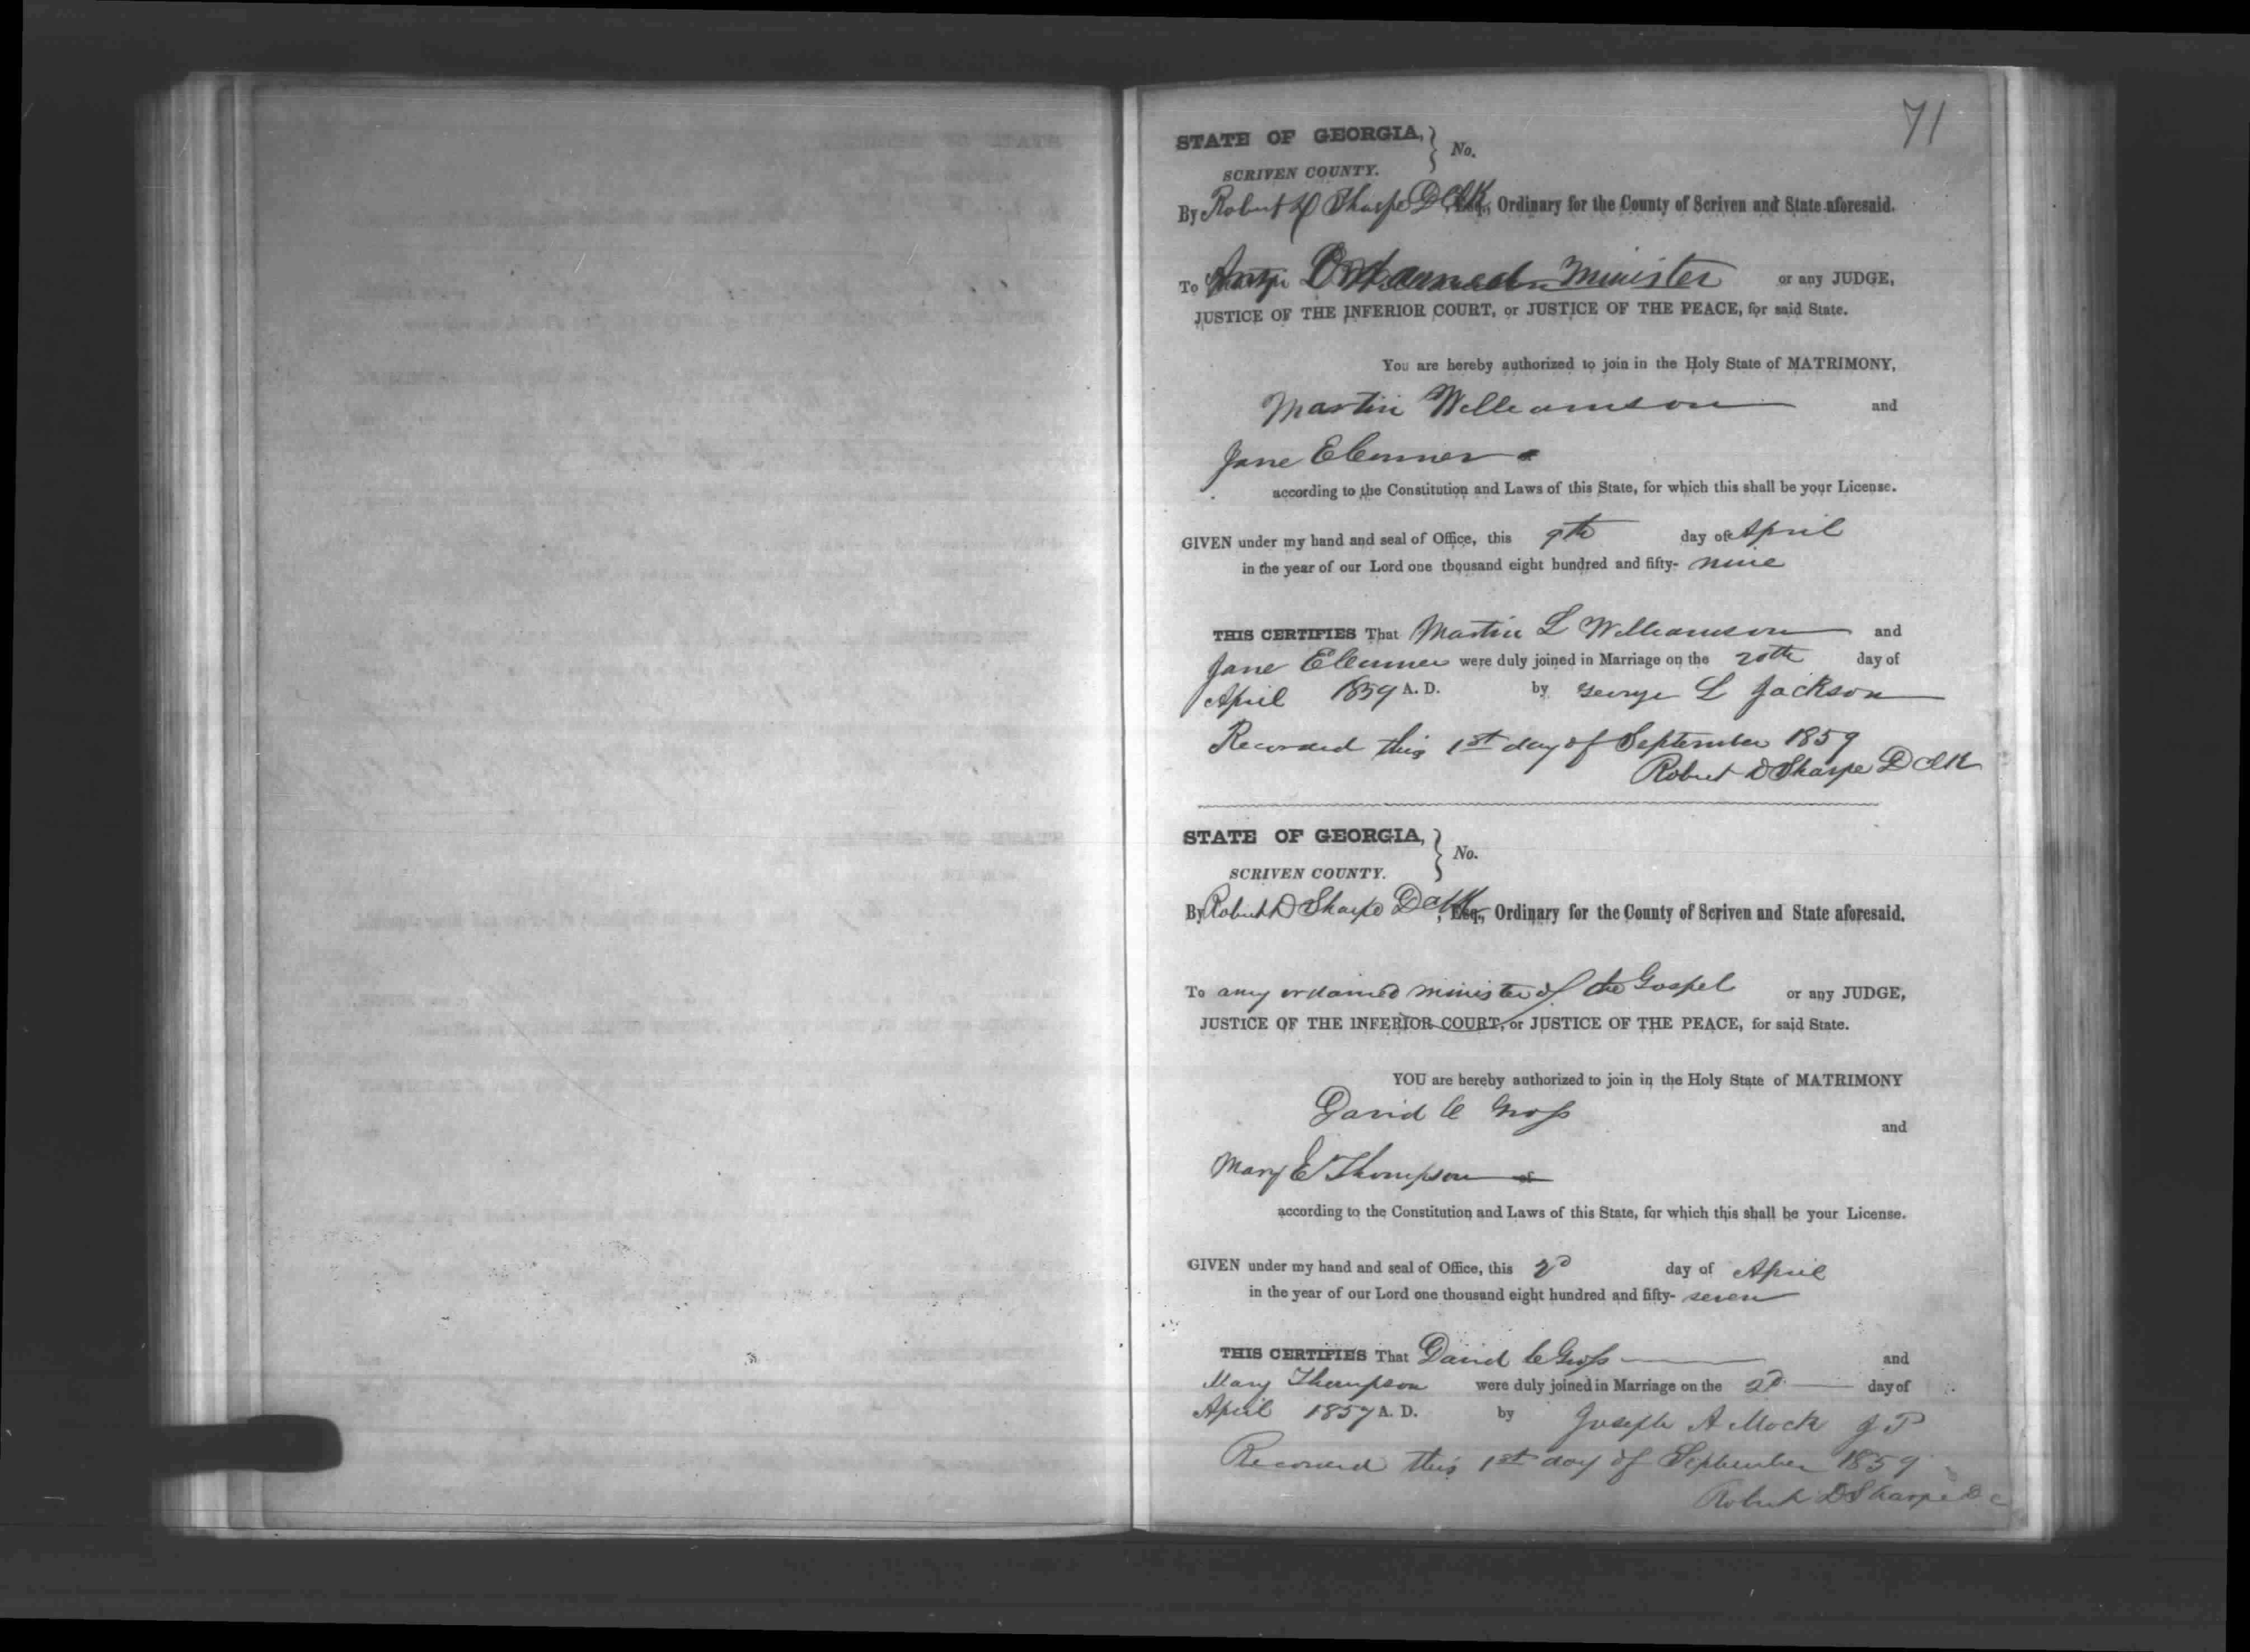 71
STATE OF GEORGIA, } No.
SCRIVEN COUNTY.
By Robert D Sharpe D Clk, Esq., Ordinary for the County of Scriven and State aforesaid.
To any Ordained Minister or any JUDGE,
JUSTICE OF THE INFERIOR COURT, or JUSTICE OF THE PEACE, for said State.
You are hereby authorized to join in the Holy State of MATRIMONY,
Martin Williamson and
Jane
according to the Constitution and Laws of this State, for which this shall be your License.
GIVEN under my hand and seal of Office, this 9th day of April
in the year of our Lord one thousand eight hundred and fifty- nine
THIS CERTIFIES That Martin L Williamson and
Jane were duly joined in Marriage on the 20th day of
April 1859 A. D. by George L Jackson
Recorded this 1st day of September 1859
Robert D Sharpe D Clk
STATE OF GEORGIA, } No.
SCRIVEN COUNTY.
By Robert D Sharpe D Clk, Esq., Ordinary for the County of Scriven and State aforesaid.
To any ordained minister of the Gospel or any JUDGE,
JUSTICE OF THE INFERIOR COURT, or JUSTICE OF THE PEACE, for said State.
YOU are hereby authorized to join in the Holy State of MATRIMONY
David C Gross
and
Mary E Thompson
according to the Constitution and Laws of this State, for which this shall be your License.
GIVEN under my hand and seal of Office, this 2d day of April
in the year of our Lord one thousand eight hundred and fifty- seven
THIS CERTIFIES That David C Gross and
Mary Thompson were duly joined in Marriage on the 2d day of
April 1857 A. D. by Joseph A Mock J P
Recorded this 1st day of September 1859
Robert D Sharpe D C